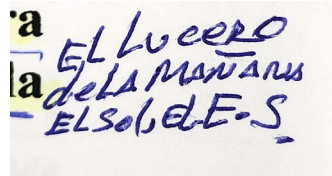 ra EL LuceRO
la deLA MAÑANA
EL Sol, del E.S.